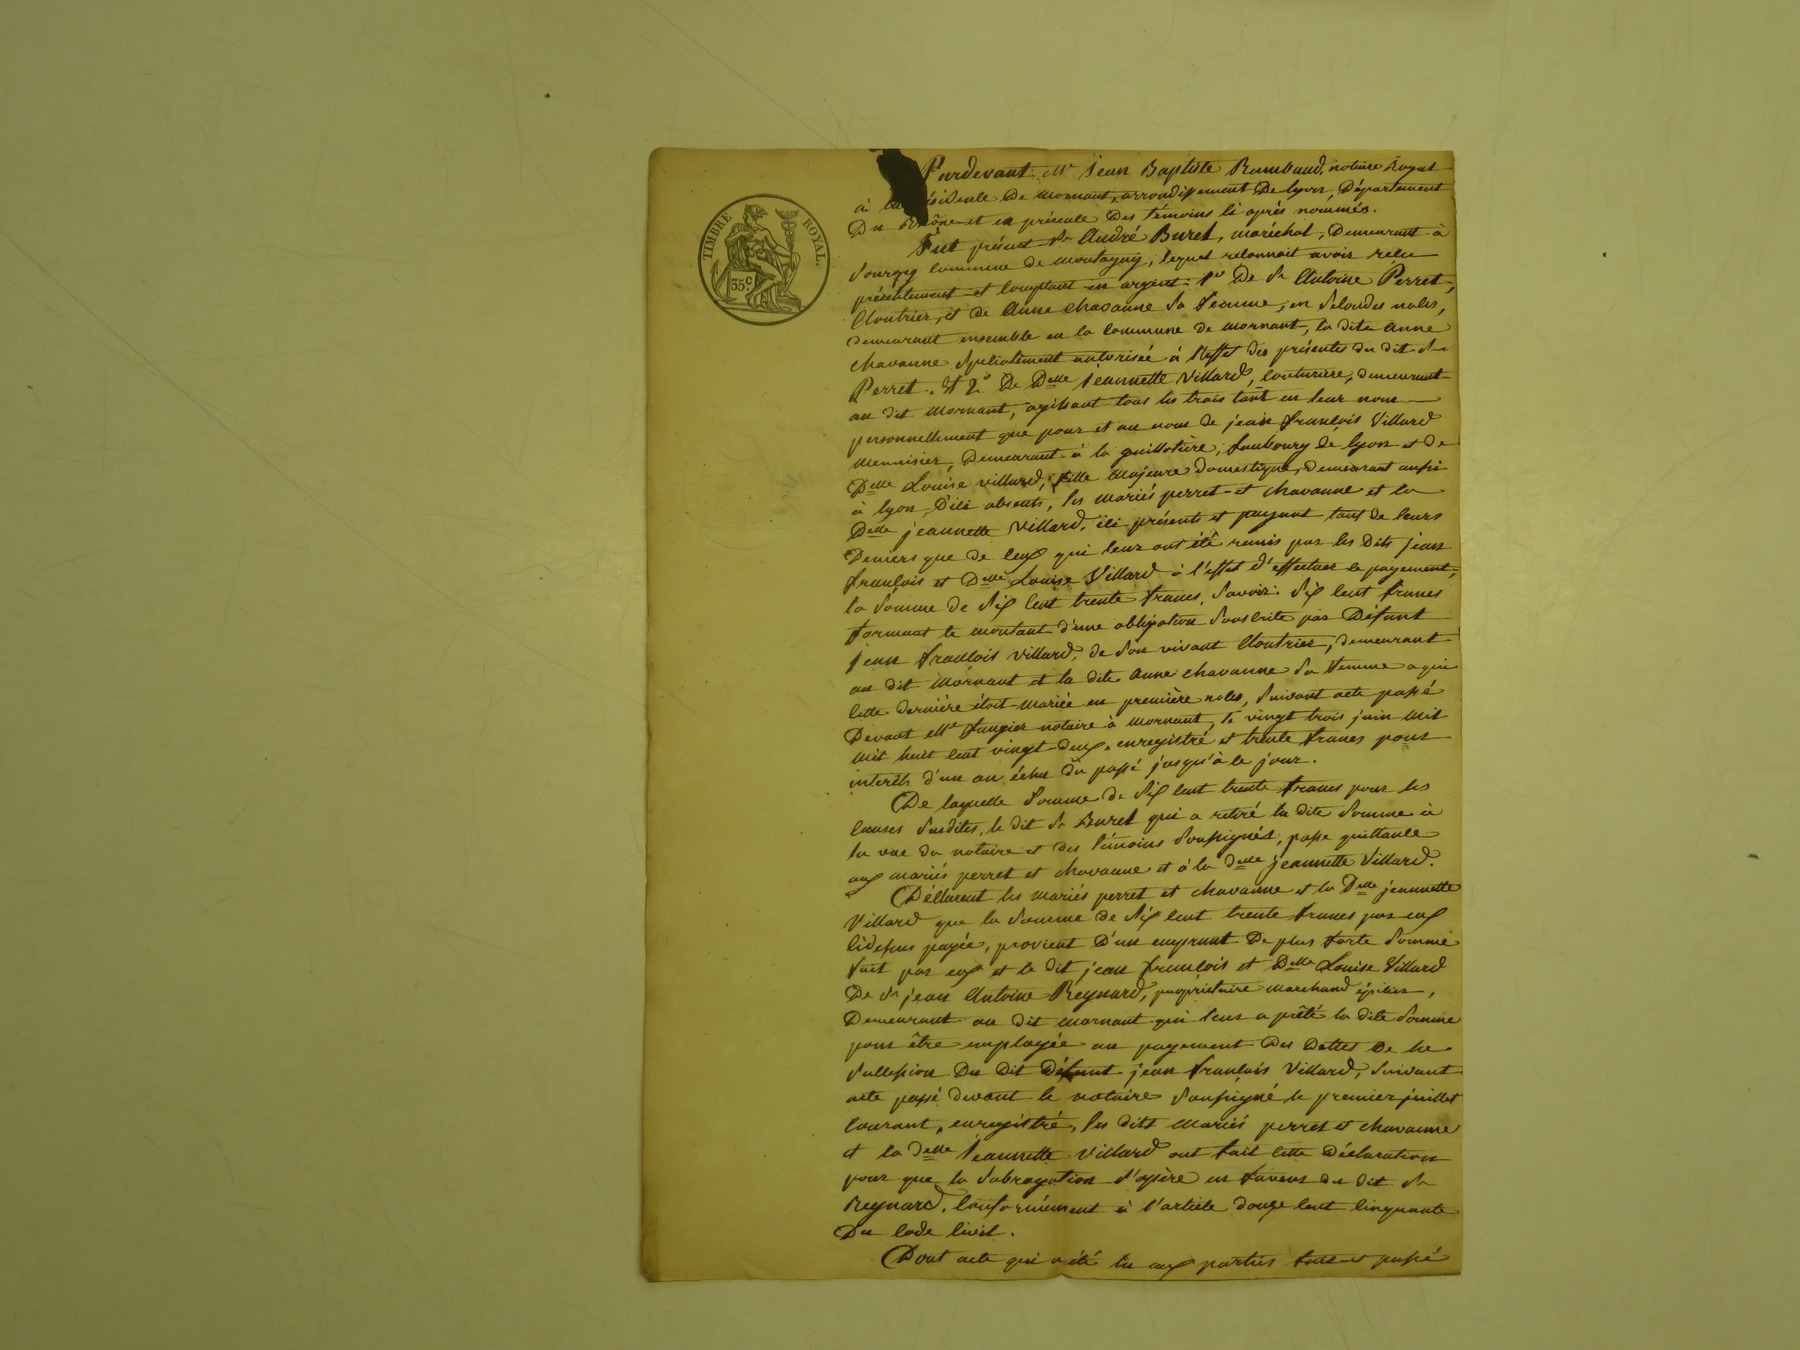 TIMBRE ROYAL.
35c
Pardevant Me Jean Baptiste Rambaud, notaire Royal
à la résidence De Mornant, arrondissement De lyon, Département
Du Rhône et en présence Des témoins ci après nommés.
Fut présent Sr André Buret, maréchal, Demeurant à
Sourzy commune de Montagny, lequel reconnait avoir reçu
présentement et comptant en argent 1o De Sr Antoine Perret,
Cloutrier, et De Anne Chavanne Sa femme, en Secondes noces,
demeurant ensemble en la Commune de Mornant, la dite Anne
Chavanne Spécialement autorisée à l'effet des présentes du dit Sr
Perret. Et 2o De Delle Jeannette Villard, Couturière, demeurant
au dit Mornant, agissant tous les trois tant en leur nom
personnellement que pour et au nom de jean françois Villard
Menuisier, Demeurant à la guillotière, faubourg de lyon et de
Delle Louise Villard, fille Majeure domestique, demeurant aussi
à lyon, D'ici absents, les Mariés perret et Chavanne et la
Delle jeannette Villard, ici présents et payant tant de leurs
Deniers que de ceux qui leur ont été remis par les Dits jean
françois et Delle Louise Villard à l'effet d'effectuer le payement,
la Somme de Six Cent trente francs, Savoir: Six Cent francs
formant le montant d'une obligation Souscrite par Défunt
jean françois Villard, de Son vivant Cloutrier, demeurant
au dit Mornant et la dite Anne Chavanne Sa femme a qui
Cette dernière étoit Mariée en première noces, Suivant acte passé
Devant Me faugier notaire à Mornant, le vingt trois juin Mil
Mil huit Cent vingt deux, enregistré et trente francs pour
intérêts d'un an échu Du passé jusqu'à Ce jour.
De laquelle Somme de Six Cent trente francs pour les
Causes Susdites, le dit Sr Buret qui a retiré la dite Somme à
la vue du notaire et des témoins Soussignés, passe quittance
aux mariés perret et Chavanne et à la Delle jeannette Villard.
Déclarent les mariés perret et Chavanne et la Delle jeannette
Villard que la Somme de Six Cent trente francs par eux
Cidessus payée, provient D'un emprunt De plus forte Somme
fait par eux et le dit jean françois et Delle Louise Villard
De Sr jean Antoine Reynard, propriétaire Marchand épicier,
Demeurant au dit Mornant qui leur a prêté la dite Somme
pour être employée au payement Des Dettes De la
Succession Du Dit Défunt jean françois Villard, Suivant
acte passé devant le notaire Soussigné le premier juillet
Courant, enregistré, les dits Mariés perret et Chavanne
et la Delle Jeannette Villard ont fait Cette Déclaration
pour que la Subrogation S'opère en faveur du dit Sr
Reynard, Conformément à l'article douze Cent Cinquante
Du Code Civil.
Dont acte qui a été lu aux parties fait et passé